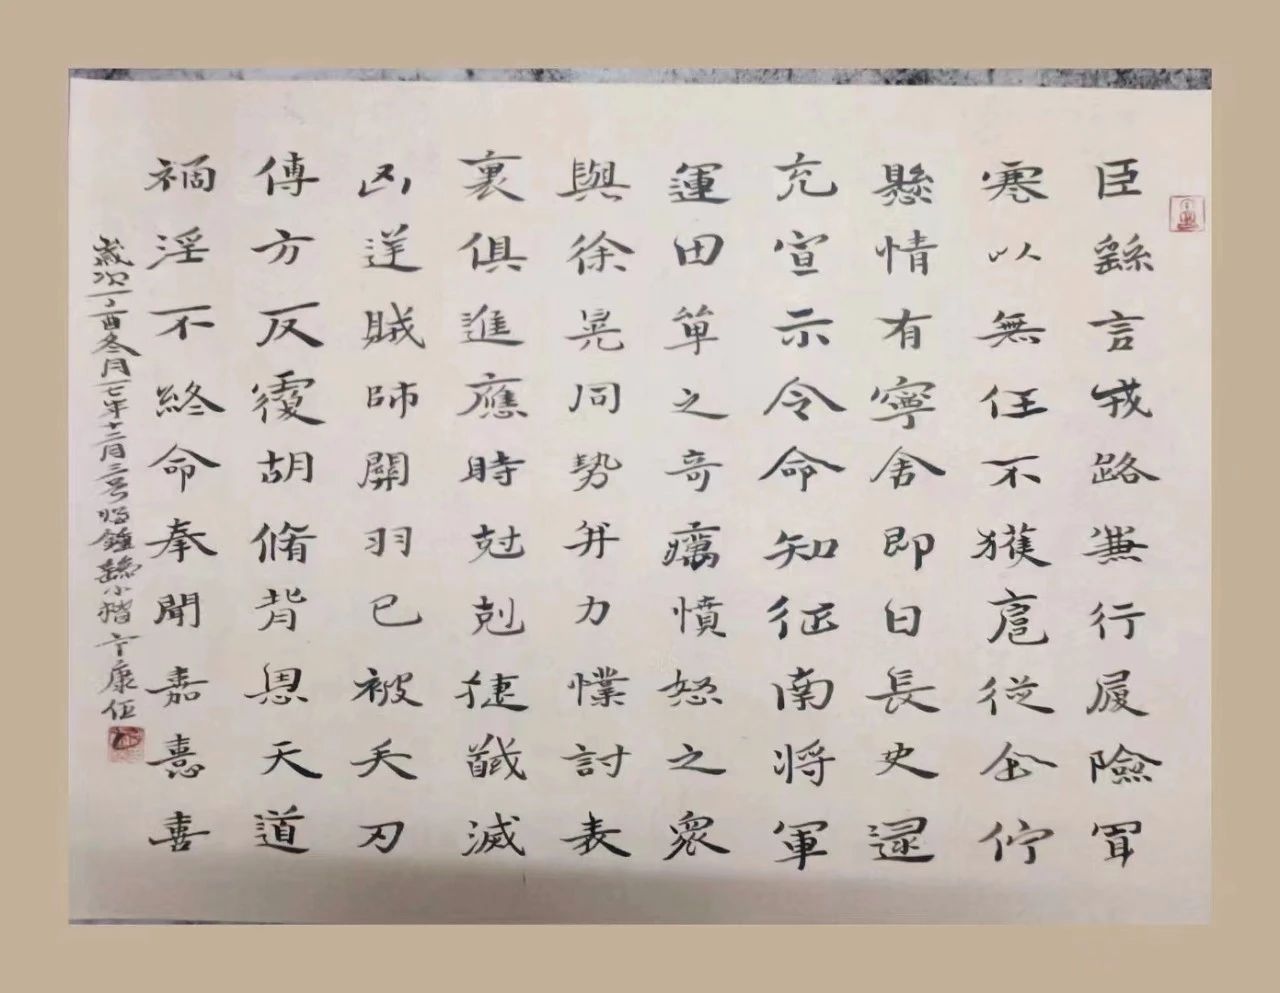 臣繇言戎路兼行履險冒
寒以無任不獲扈從企佇
懸情有寧舍即日長史逯
充宣示令命知征南将軍
運田單之奇癘憤怒之衆
與徐晃同勢并力懞討表
裏俱進應時尅剋捷馘滅
凶逆賊帥關羽已被矢刃
傅方反覆胡脩背恩天道
禍淫不終命奉聞嘉憙喜
歲次丁酉冬月一七年十二月三号临鍾繇小楷 康伍